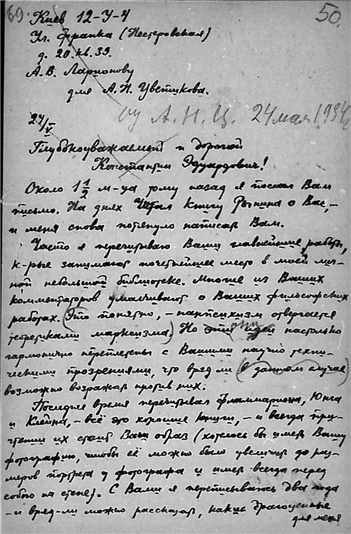 69. 50.
Киев 12-У-4
Ул. Франка (Нестеровская)
д. 20. кв. 39.
А. В. Ларионову
для А. Н. Цветикова.
от А. Н. Ц. 24 мая 1934
24/V
Глубокоуважаемый и дорогой
Константин Эдуардович!
Около 1 1/2 м-ца тому назад я послал Вам
письмо. На днях читал книгу Рынина о Вас, —
и меня снова потянуло написать Вам.
Часто я перечитываю Ваши главнейшие работы,
к-рые занимают почетнейшее место в моей лич-
ной небольшой библиотеке. Многие из Ваших
комментаторов умалчивают о Ваших философских
работах. (Это понятно, — панпсихизм отвергается
теоретиками марксизма). Но они настолько
гармонично переплетены с Вашими научно-техни-
ческими прозрениями, что вряд ли (в данном случае)
возможно возражать против них.
Последнее время перечитывал Фламмариона, Юнга
и Клейна, — всё это хорошие книги, — и всегда при
чтении их стоит Ваш образ (хотелось бы иметь Вашу
фотографию, чтобы её можно было увеличить до раз-
меров портрета у фотографа и иметь всегда перед
собою на стене). С Вами я переписываюсь два года
— и вряд-ли можно рассказать, какие драгоценные
для меня